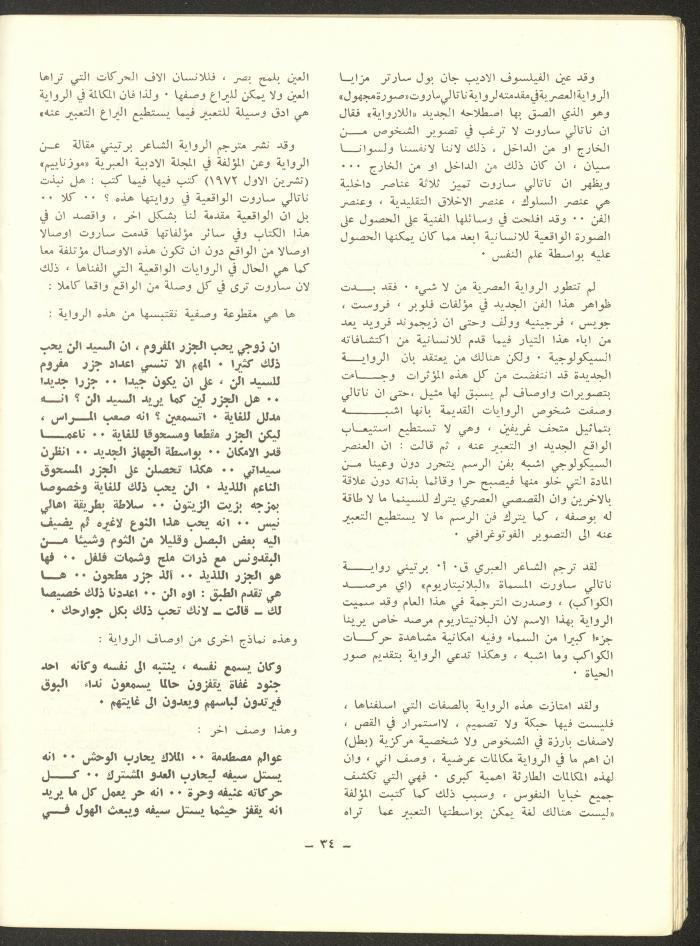 وقد عين الفيلسوف الاديب جان بول سارتر مزايا
الرواية العصرية في مقدمته لرواية ناتالي ساروت «صورة مجهول»
وهو الذي الصق بها اصطلاحه الجديد «اللارواية» فقال
ان ناتالي ساروت لا ترغب في تصوير الشخوص من
الخارج او من الداخل ، ذلك لاننا لانفسنا ولسوانا
سيان ، ان كان ذلك من الداخل او من الخارج ٠٠٠
ويظهر ان ناتالي ساروت تميز ثلاثة عناصر داخلية
هي عنصر السلوك ، عنصر الاخلاق التقليدية ، وعنصر
الفن ٠٠ وقد افلحت في وسائلها الفنية على الحصول على
الصورة الواقعية للانسانية ابعد مما كان يمكنها الحصول
عليه بواسطة علم النفس ٠
لم تتطور الرواية العصرية من لا شيء ٠ فقد بدت
ظواهر هذا الفن الجديد في مؤلفات فلوبر ، فروست ،
جويس ، فرجينيه وولف وحتى ان زيجموند فرويد يعد
من اباء هذا التيار فيما قدم للانسانية من اكتشافاته
السيكولوجية ٠ ولكن هنالك من يعتقد بان الرواية
الجديدة قد انتفضت من كل هذه المؤثرات وجاءت
بتصويرات واوصاف لم يسبق لها مثيل ،حتى ان ناتالي
وصفت شخوص الروايات القديمة بانها اشبه
بتماثيل متحف غريفين ، وهي لا تستطيع استيعاب
الواقع الجديد او التعبير عنه ، ثم قالت : ان العنصر
السيكولوجي اشبه بفن الرسم يتحرر دون وعينا من
المادة التي خلو منها فيصبح حرا وقائما بذاته دون علاقة
بالاخرين وان القصصي العصري يترك للسينما ما لا طاقة
له بوصفه ، كما يترك فن الرسم ما لا يستطيع التعبير
عنه الى التصوير الفوتوغرافي ٠
لقد ترجم الشاعر العبري ق٠ أ٠ برتيني رواية
ناتالي ساورت المسماة «البلانيتاريوم» (اي مرصد
الكواكب) ، وصدرت الترجمة في هذا العام وقد سميت
الرواية بهذا الاسم لان البلانيتاريوم مرصد خاص يرينا
جزءا كبيرا من السماء وفيه امكانية مشاهدة حركات
الكواكب وما اشبه ، وهكذا تدعي الرواية بتقديم صور
الحياة ٠
ولقد امتازت هذه الرواية بالصفات التي اسلفناها ،
فليست فيها حبكة ولا تصميم ، لااستمرار في القص ،
لاصفات بارزة في الشخوص ولا شخصية مركزية (بطل)
ان اهم ما في الرواية مكالمات عرضية ، وصف اني ، وان
لهذه المكالمات الطارئة اهمية كبرى ٠ فهي التي تكشف
جميع خبايا النفوس ، وسبب ذلك كما كتبت المؤلفة
«ليست هنالك لغة يمكن بواسطتها التعبير عما تراه
العين بلمح بصر ، فللانسان الاف الحركات التي تراها
العين ولا يمكن لليراع وصفها ٠ ولذا فان المكالمة في الرواية
هي ادق وسيلة للتعبير فيما يستطيع اليراع التعبير عنه»
وقد نشر مترجم الرواية الشاعر برتيني مقالة عن
الرواية وعن المؤلفة في المجلة الادبية العبرية «موزناييم»
(تشرين الاول ١٩٧٢) كتب فيها فيما كتب : هل نبذت
ناتالي ساروت الواقعية في روايتها هذه ؟ ٠٠ كلا ٠٠
بل ان الواقعية مقدمة لنا بشكل اخر ، واقصد ان في
هذا الكتاب وفي سائر مؤلفاتها قدمت ساروت اوصالا
اوصالا من الواقع دون ان تكون هذه الاوصال مؤتلفة معا
كما هي الحال في الروايات الواقعية التي الفناها ، ذلك
لان ساروت ترى في كل وصلة من الواقع واقعا كاملا :
ها هي مقطوعة وصفية نقتبسها من هذه الرواية :
ان زوجي يحب الجزر المفروم ، ان السيد الن يحب
ذلك كثيرا ٠ المهم الا تنسي اعداد جزر مفروم
للسيد الن ، على ان يكون جيدا ٠٠ جزرا جديدا
٠٠ هل الجزر لين كما يريد السيد الن ؟ انه
مدلل للغاية ٠ اتسمعين ؟ انه صعب المراس ،
ليكن الجزر مقطعا ومسحوقا للغاية ٠٠ ناعما
قدر الامكان ٠٠ بواسطة الجهاز الجديد ٠٠ انظرن
سيداتي ٠٠ هكذا تحصلن على الجزر المسحوق
الناعم اللذيذ ٠ الن يحب ذلك للغاية وخصوصا
بمزجه بزيت الزيتون ٠٠ سلاطة بطريقة اهالي
نيس ٠٠ انه يحب هذا النوع لاغيره ثم يضيف
اليه بعض البصل وقليلا من الثوم وشيئا من
البقدونس مع ذرات ملح وشمات فلفل ٠٠ فها
هو الجزر اللذيذ ٠٠ الذ جزر مطحون ٠٠ ها
هي تقدم الطبق : اوه الن ٠٠ اعددنا ذلك خصيصا
لك ــ قالت ــ لانك تحب ذلك بكل جوارحك ٠
وهذه نماذج اخرى من اوصاف الرواية :
وكان يسمع نفسه ، ينتبه الى نفسه وكأنه احد
جنود غفاة يقفزون حالما يسمعون نداء البوق
فيرتدون لباسهم ويعدون الى غايتهم ٠
وهذا وصف اخر :
عوالم مصطدمة ٠٠ الملاك يحارب الوحش ٠٠ انه
يستل سيفه ليحارب العدو المشترك ٠٠ كل
حركاته عنيفه وحرة ٠٠ انه حر يعمل كل ما يريد
انه يقفز حيثما يستل سيفه ويبعث الهول في
ــ ٣٤ ــ